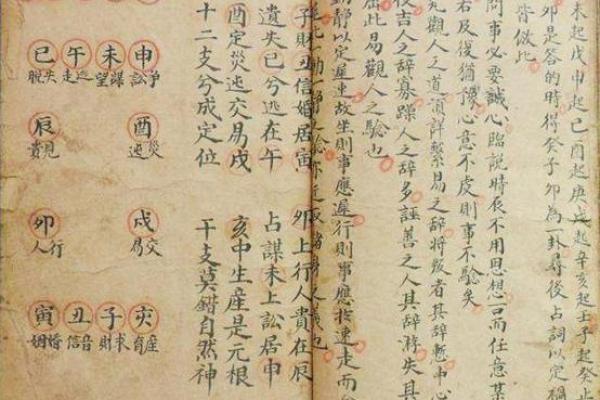 未起戊申起己酉起庚戌起辛亥起壬子起癸止
卯是答的時得癸子卯為一卦尋後占詞以定禍
皆倣此
問事必要誠心臨説時辰不用思想言而任意某
若及復猶豫心意不虔則事不驗矣
凢觀人之道須詳繫易之辭将叛者其辭慙中心
枝吉人之辭寡躁人之辭多誣善之人其辭游失其
屈此易觀人之驗也
動靜以定遲速故坐則事應遲行則事應速走而
此一動靜之驗亦近取諸身之義也
子財丑信婚居寅 卯上行人貴在辰
遺失巳兮逃在午 占謀未上訟居申
酉定災迍交易戌 亥中生産是元根
十二支兮成定位 干支莫錯自然神
申 未 午 巳
争訟 謀望 迯走 失脱
酉 辰
災迍 見貴
戌 卯
交易 行人
亥 子 丑 寅
産育 求財 音信 婚姻